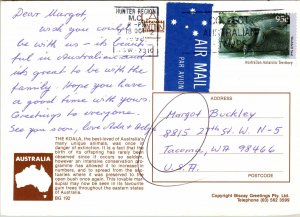 Dear Margot,
wish you could
be with us - it's beauti-
ful in Australia and
it's great to be with the
family. Hope you have
a good time with yours.
Greetings to everyone.
See you soon, love
THE KOALA, the best-loved of Australia's
many unique animals, was once in
danger of extinction. It is a fact that the
birth of its offspring has rarely been
observed since it occurs so seldom,
however an intensive conservation pro-
gramme has allowed it to increase in
numbers, and to spread from the sec-
tions where it was preserved to the
open bush once again. This lovable mar-
supial may now be seen in its favourite
gum trees throughout the eastern states
of Australia.
BG 192
AUSTRALIA
HUNTER REGION
M.C.
N.S.W. 2310
AUSTRALIAN
95c
Australian Antarctic Territory
AIR MAIL
PAR AVION
ADDRESS
Margot Buckley
8815 27th St. W. N-5
Tacoma, WA 98466
U.S.A.
POSTCODE
Copyright Biscay Greetings Pty. Ltd.
Telephone (03) 562 3999